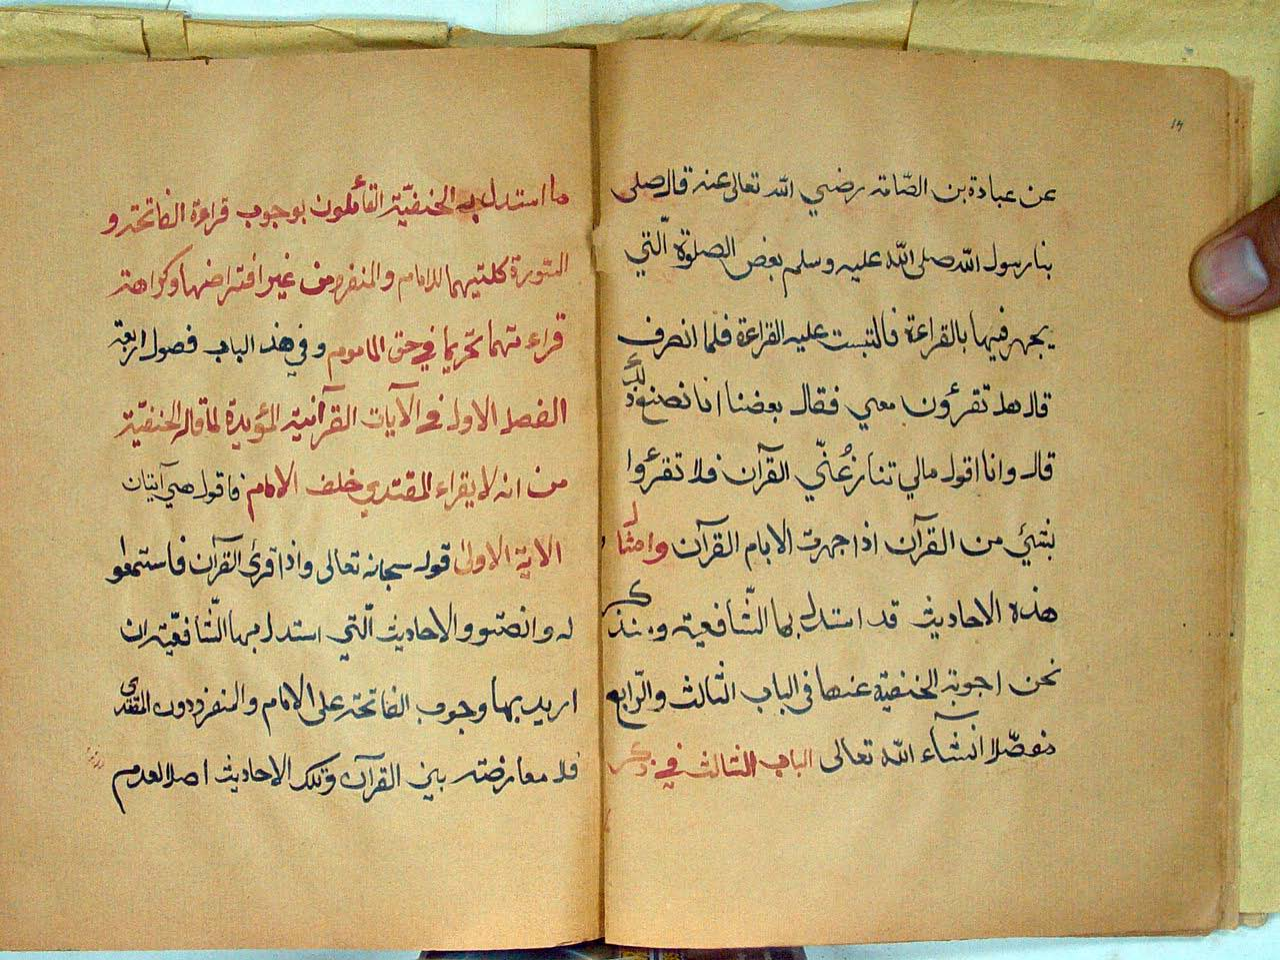 ١٣
عن عبادة بن الصّامة رضي الله تعالى عنه قال صلى
بنا رسول الله صلى الله عليه وسلم بعض الصلوة الّتي
يجهر فيها بالقراءة فالتبست عليه القراءة فلما انصرف
قال هل تقرؤن معي فقال بعضنا انا نصنع ذلك
قال وانا اقول مالي تنازعُنّي القرآن فلا تقرؤا
بشئ من القرآن اذا جهرت الامام القرآن وامثال
هذه الاحاديث قد استدل بها الشّافعية وسنذكر
نحن اجوبة الحنفية عنها في الباب الثالث والرّابع
مفصّلا انشآء الله تعالى الباب الثالث في ذكر
ما استدل به الحنفيّة القائلون بوجوب قراءة الفاتحة و
السّورة كلتيهما للامام والمنفرد من غير افتراضها وكراهة
قراءتهما تحريما في حق الماموم وفي هذ الباب فصول اربعة
الفصل الاول في الآيات القرآنية المؤيدة لما قاله الحنفيّة
من انه لا يقراء المقتدي خلف الامام فاقول هي آيتان
الاية الاولى قوله سبحانه تعالى واذا قرئ القرآن فاستمعوا
له وانصتوا والاحاديث الّتي استدل بها الشّافعيّة ان
اريد بها وجوب الفاتحة على الامام والمنفرد دون المقتدي
فلا معارضة بين القرآن وتلك الاحاديث اصلا لعدم